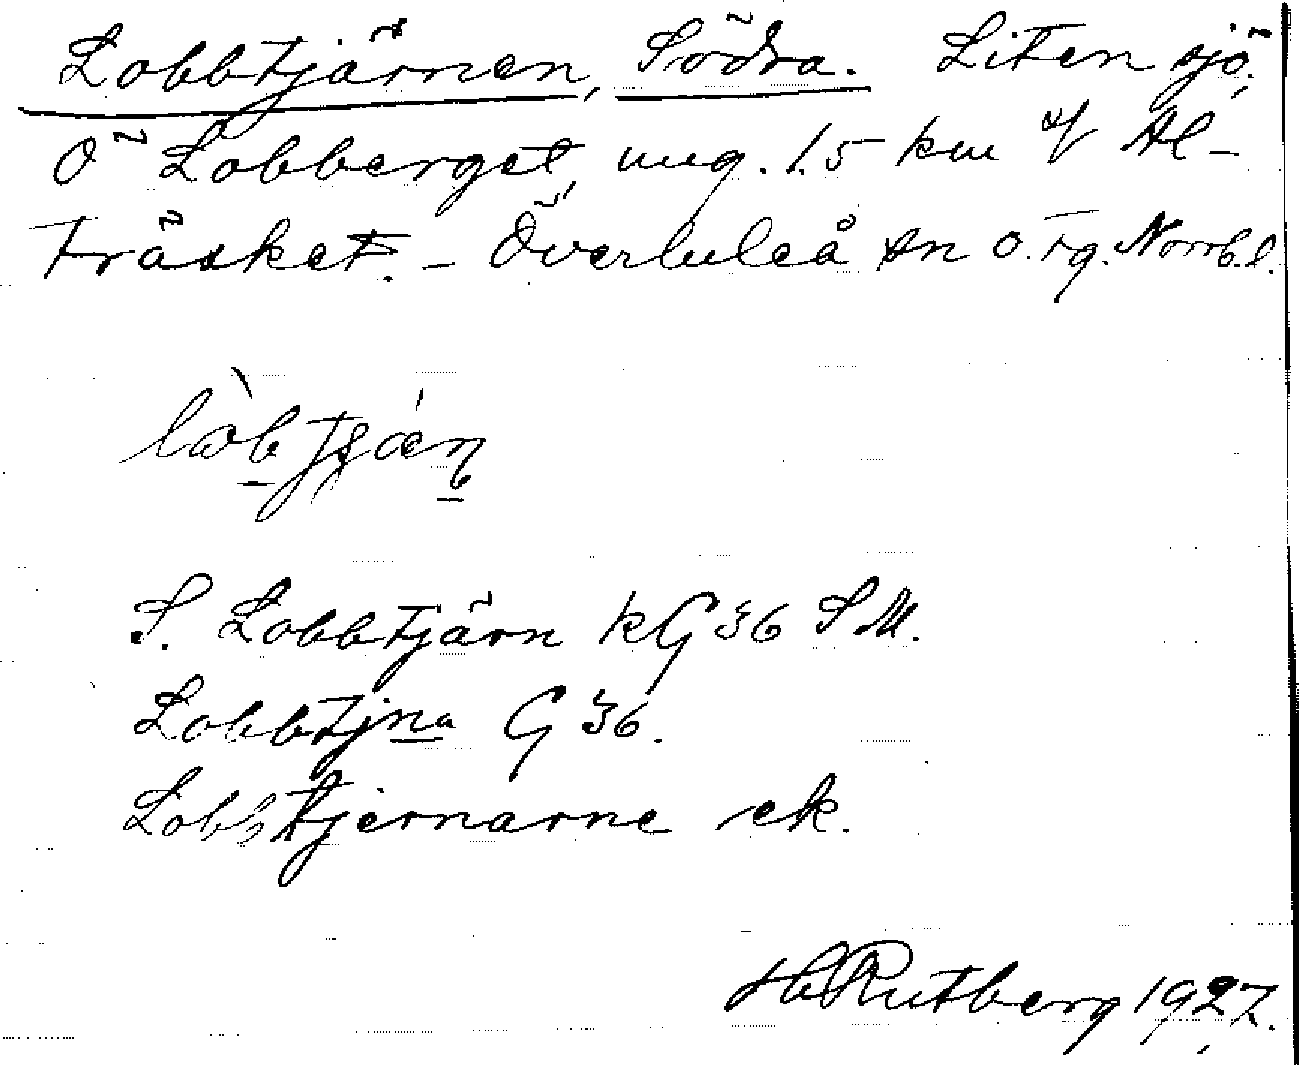 Lobbtjärnen, Södra. Liten sjö,
Ö Lobberget, ung. 1.5 km Al-
träsket. - Överluleå sn o. tg. Norrb. l.
S. Lobbtjärn kG 36 SM.
Lobbtjna G 36.
Lobbtjernarne ek.
H Rutberg 1927.